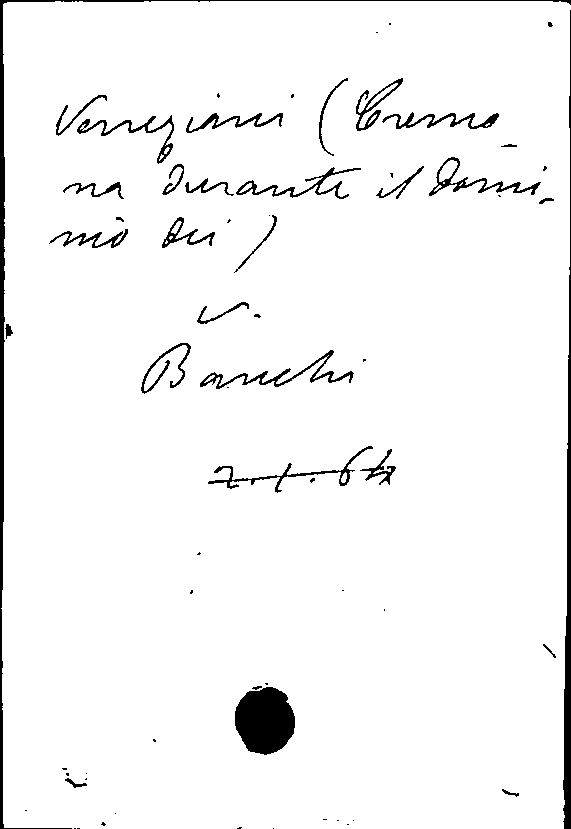 Veneziani (Cremo
na durante il domi-
nio dei)
v.
Bianchi
2.1.64